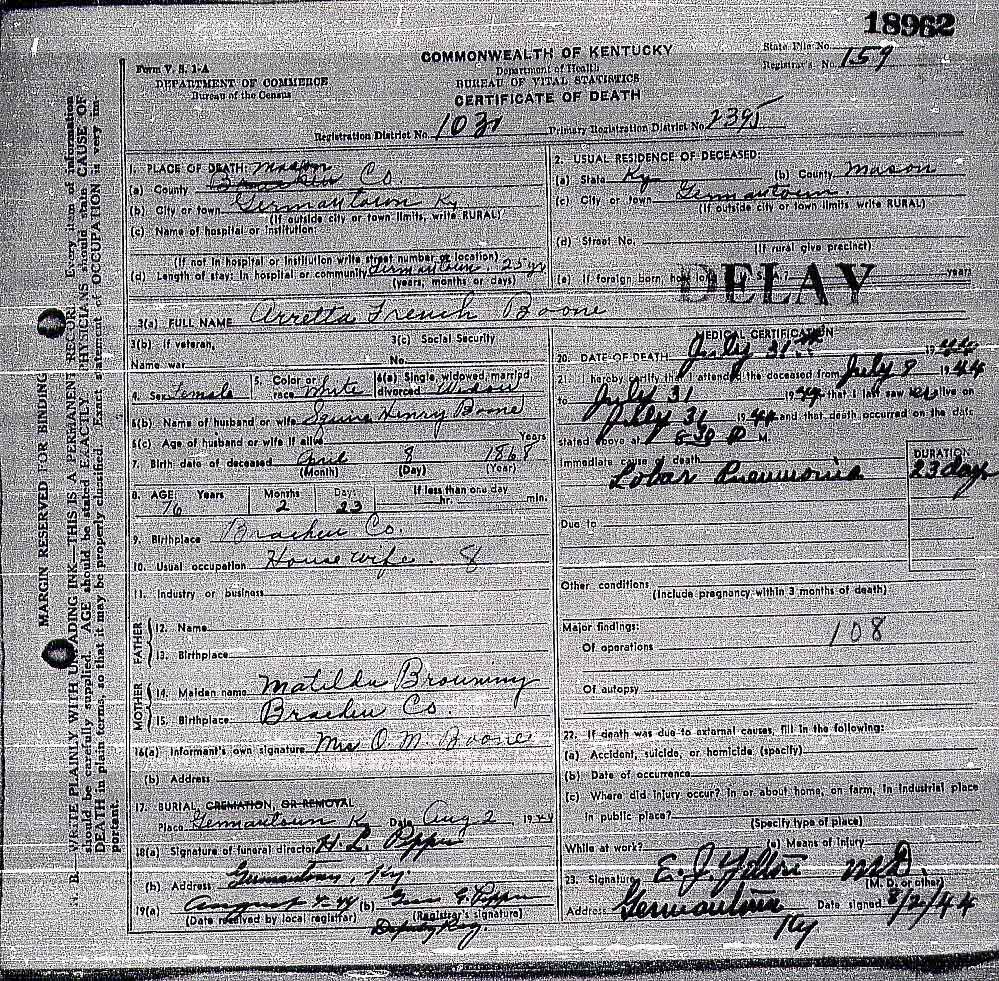 18962
COMMONWEALTH OF KENTUCKY
State File No.
Form V. S. 1-A
Department of Health
Registrar's No. 159
DEPARTMENT OF COMMERCE
BUREAU OF VITAL STATISTICS
Bureau of the Census
CERTIFICATE OF DEATH
Registration District No. 1031
Primary Registration District No. 2395
MARGIN RESERVED FOR BINDING
N. B.—WRITE PLAINLY WITH UNFADING INK—THIS IS A PERMANENT RECORD. Every item of information
should be carefully supplied. AGE should be stated EXACTLY. PHYSICIANS should state CAUSE OF
DEATH in plain terms, so that it may be properly classified. Exact statement of OCCUPATION is very im-
portant.
1. PLACE OF DEATH: Mason
(a) County Bracken Co.
(b) City or town Germantown Ky
(If outside city or town limits, write RURAL)
(c) Name of hospital or institution:
(If not in hospital or institution write street number or location)
(d) Length of stay: In hospital or community Germantown 25 yr
(years, months or days)
2. USUAL RESIDENCE OF DECEASED
(a) State Ky (b) County Mason
(c) City or town Germantown
(If outside city or town limits write RURAL)
(d) Street No.
(If rural give precinct)
(e) If foreign born, how long in U. S.? years
DELAY
3(a) FULL NAME Arretta French Boone
3(b) If veteran, 3(c) Social Security
Name war No.
4. Sex Female 5. Color or race White 6(a) Single, widowed, married, divorced Widow
6(b) Name of husband or wife Squire Henry Boone
6(c) Age of husband or wife if alive Years
7. Birth date of deceased April 8 1868
(Month) (Day) (Year)
8. AGE: Years Months Days If less than one day
76 2 23 hr. min.
9. Birthplace Bracken Co.
10. Usual occupation House wife. 8
11. Industry or business
FATHER
12. Name
13. Birthplace
MOTHER
14. Maiden name Matilda Browning
15. Birthplace Bracken Co.
16(a) Informant's own signature Mrs O. M. Boone
(b) Address
17. BURIAL, CREMATION, OR REMOVAL
Place Germantown Ky Date Aug 2 1944
18(a) Signature of funeral director H. L. Pepper
(b) Address Germantown, Ky.
19(a) August 4-44 (b) Geo G. Pepper
(Date received by local registrar) (Registrar's signature)
Deputy Reg.
MEDICAL CERTIFICATION
20. DATE OF DEATH July 31st 1944
21. I hereby certify that I attended the deceased from July 8 1944
to July 31 1944 that I last saw her alive on
July 31 1944 and that death occurred on the date
stated above at 6 30 P M.
Immediate cause of death DURATION
Lobar Pneumonia 23 days
Due to
Other conditions
(Include pregnancy within 3 months of death)
Major findings: 108
Of operations
Of autopsy
22. If death was due to external causes, fill in the following:
(a) Accident, suicide, or homicide (specify)
(b) Date of occurrence
(c) Where did injury occur? In or about home, on farm, in industrial place
in public place?
(Specify type of place)
While at work? (e) Means of injury
23. Signature E. J. Yelton M.D.
(M. D. or other)
Address Germantown Date signed 8/2/44
Ky